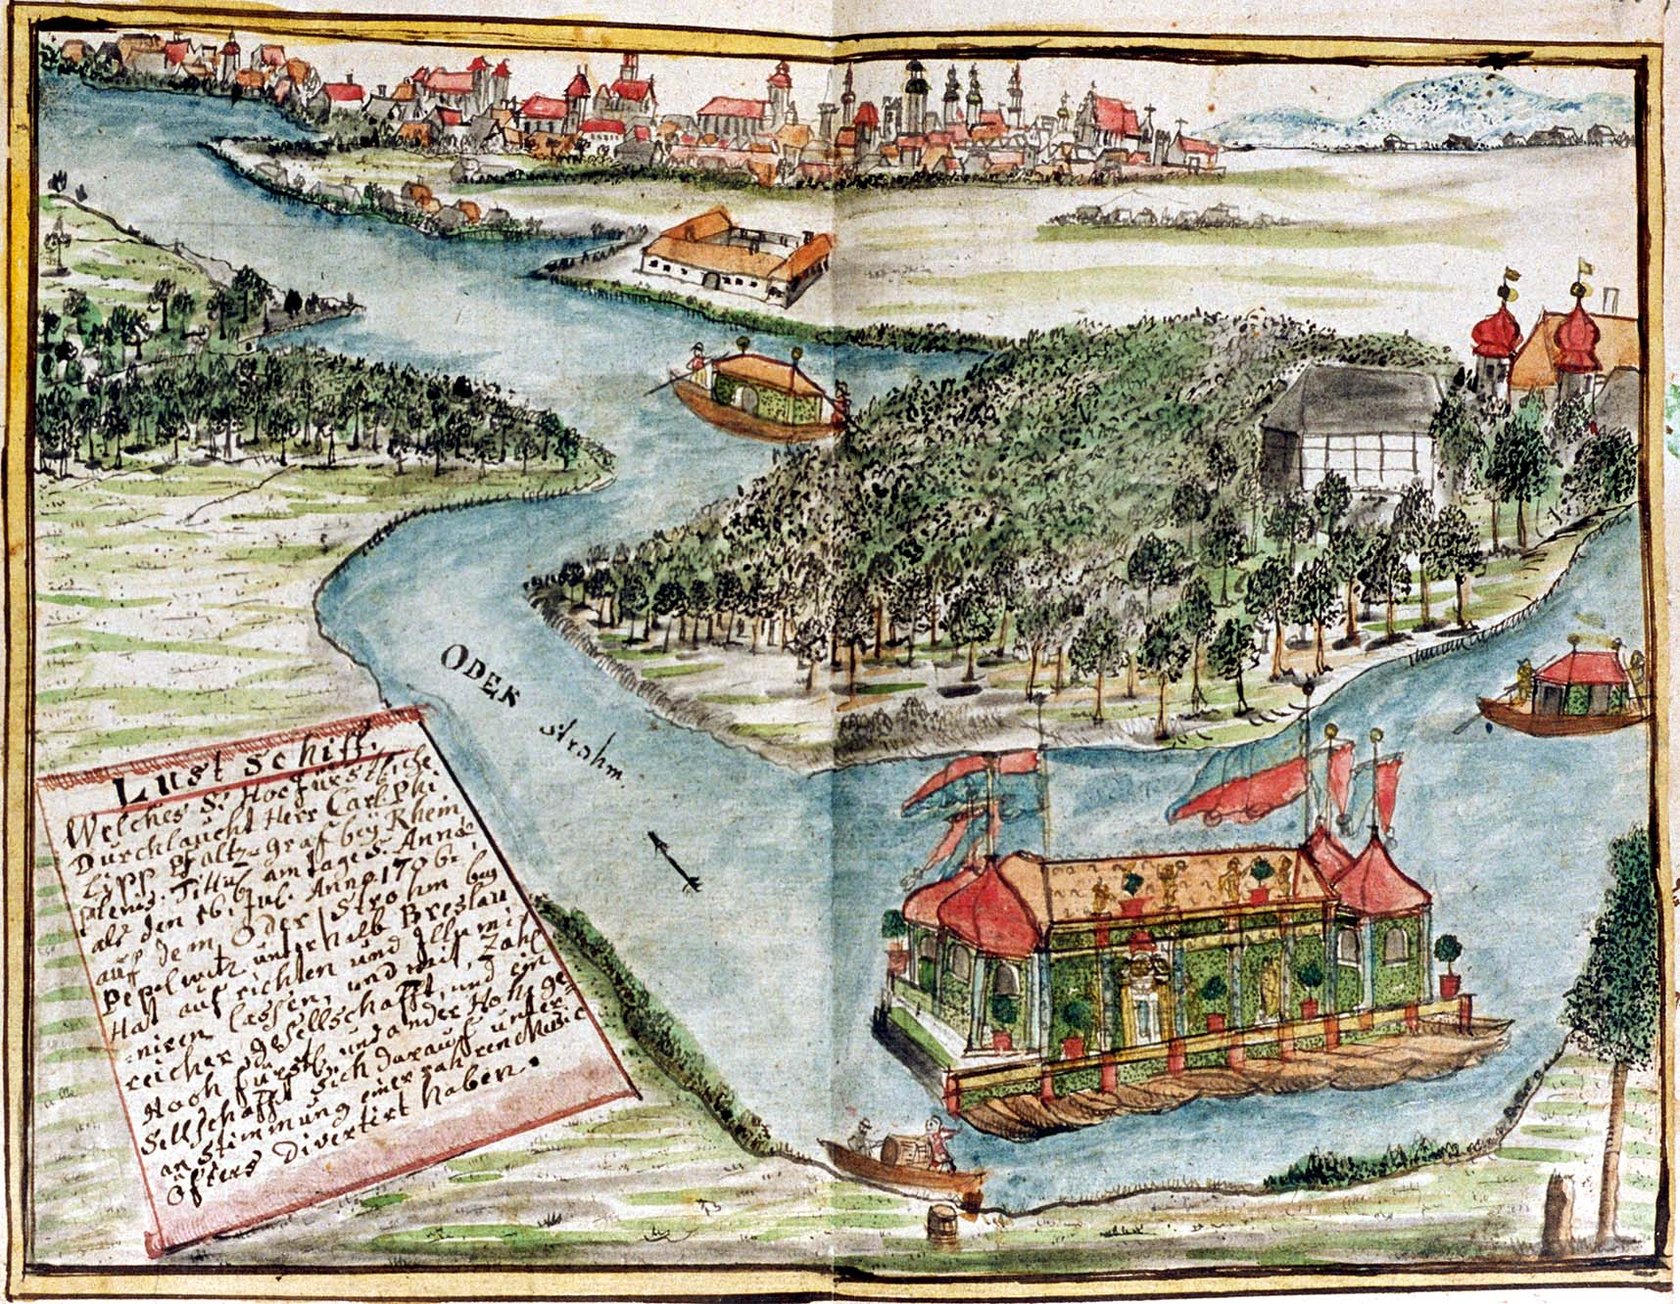 ODER Strohm
Lust Schiff,
Welches Sr Hoch Fürstliche
Durchlaucht Herr Carl Phi
lipp Pfaltz-graf beÿ Rhein
plenis. Titul: am tage S. Annæ
alß den 26. Jul. Anno. 1706.
auff dem Oder Strohm beÿ
Pepelwitz unterhalb Breslau
Hat auf richten und Illumi
-niren lassen, und mit Zahl
reicher gesellschafft, und ein
Hoch fürstl. und ander Hoh. ge-
sellschafft sich darauff unter
anstimmung einer rahren Music
öfters divertirt haben.